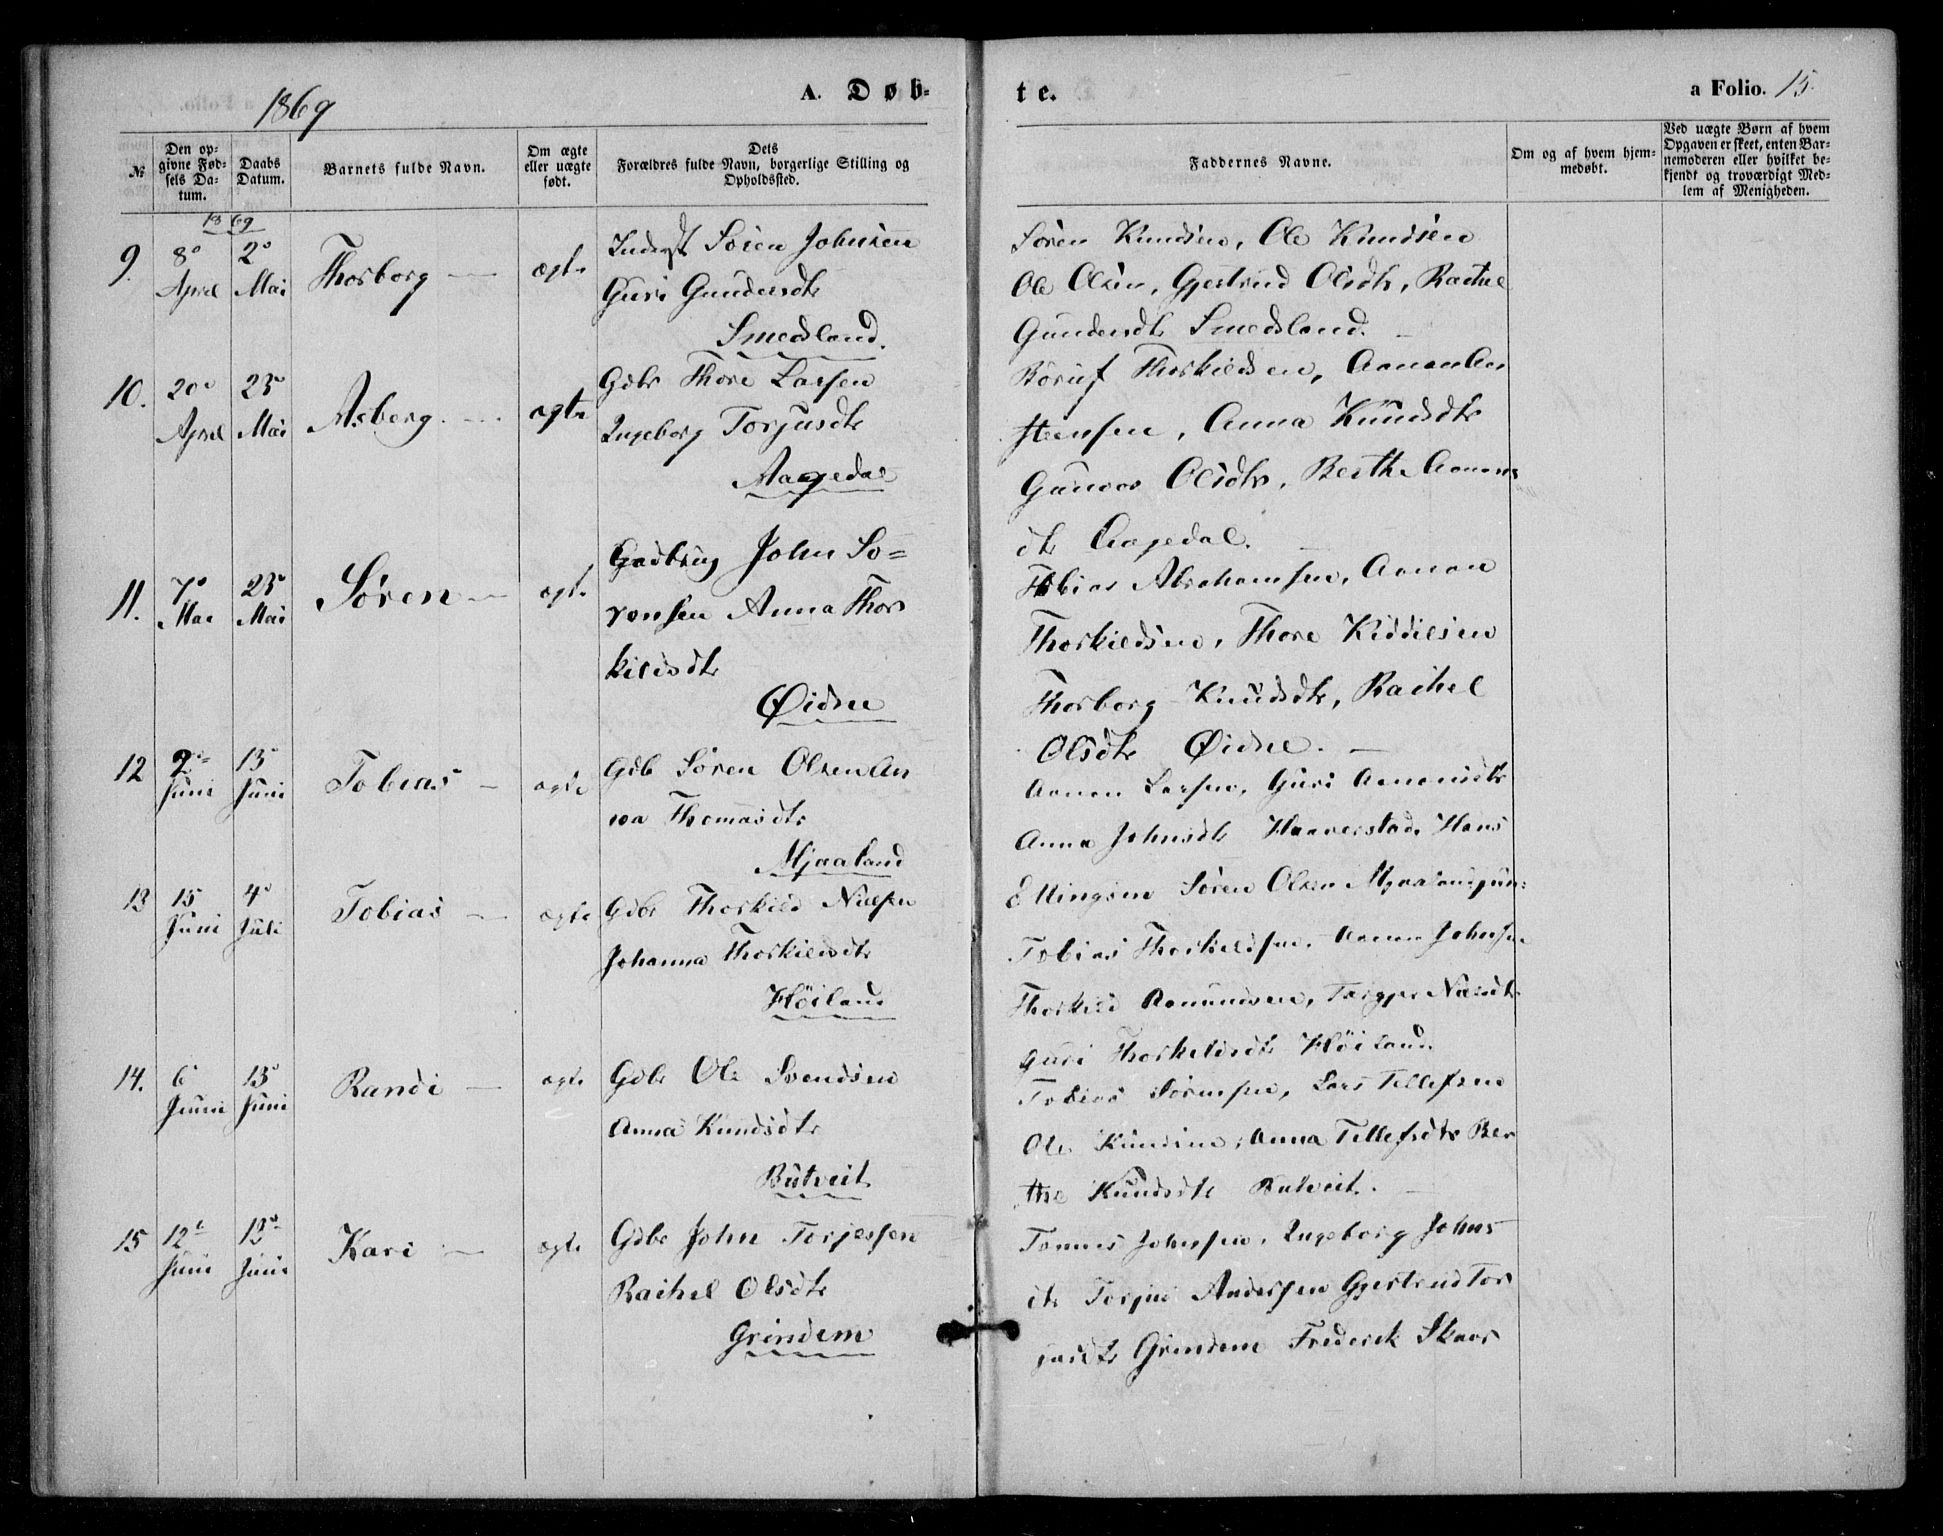 1869
A. Døb-
te.
a Folio. 15.
№
Den op-
givne Fød-
sels Da-
tum.
Daabs
Datum.
Barnets fulde Navn.
Om ægte
eller uægte
født.
Dets
Forældres fulde Navn, borgerlige Stilling og
Opholdssted.
Faddernes Navne.
Om og af hvem hjem-
medøbt.
Ved uægte Børn af hvem
Opgaven er skeet, enten Bar-
nemoderen eller hvilket be-
kjendt og troværdigt Med-
lem af Menigheden.
1869
9. 8de April 2de Mai Thorborg ægte
Inderst Sören Johnsen
Guri Gundersdtr
Smedsland.
Sören Knudsen, Ole Knudsen
Ole Olsen, Gjertrud Olsdtr, Rachel
Gundersdtr Smedsland.
10. 20de April 23de Mai Asberg. ægte
Gdbr Thore Larsen
Ingeborg Torjusdtr
Aagedal
Thorkildsen, Aanen
Jensen, Anna Knudsdtr
Gunvor Olsdtr, Berthe Aanens
dtr Aagedal.
11. 7de Mai 23de Mai Sören ægte
Gadbrug John Sö=
rensen Anna Thor
kildsdtr
Øidne
Tobias Abrahamsen, Aanen
Thorkildsen, Thore Kiddelsen
Thorborg Knudsdtr, Rachel
Olsdtr Øidne.
12 2de Juni 13de Juni Tobias ægte
Gdb Sören Olsen An
na Thomasdtr
Mjaaland
Aanen Larsen, Guri Aanensdtr
Anna Johnsdtr Haaverstad, Hans
Ellingsen Sören Olsen
13 15 Juni 4de Juli Tobias ægte
Gdbr Thorkild Nielsen
Johanna Thorkildsdtr
Höiland
Tobias Thorkeldsen, Aanen Johnsen
Thorkild Nielsdtr
Guri Thorkeldsdtr Höiland.
14. 6 Juni 13de Juni Randi ægte
Gdbr Ole Svendsen
Anna Knudsdtr
Butveit
Tobias Sörensen, Lars Tellefsen
Ole Knudsen, Anna Tellefsdtr Ber
the Knudsdtr Butveit.
15 12te Juni 13de Juni Kari ægte
Gdbr John Torjessen
Rachel Olsdtr
Grindem
Tonnes Johnsen, Ingeborg Johns
dtr Torjus Andersen Gjertrud Tor
jusdtr Grindem Frederik Skaar